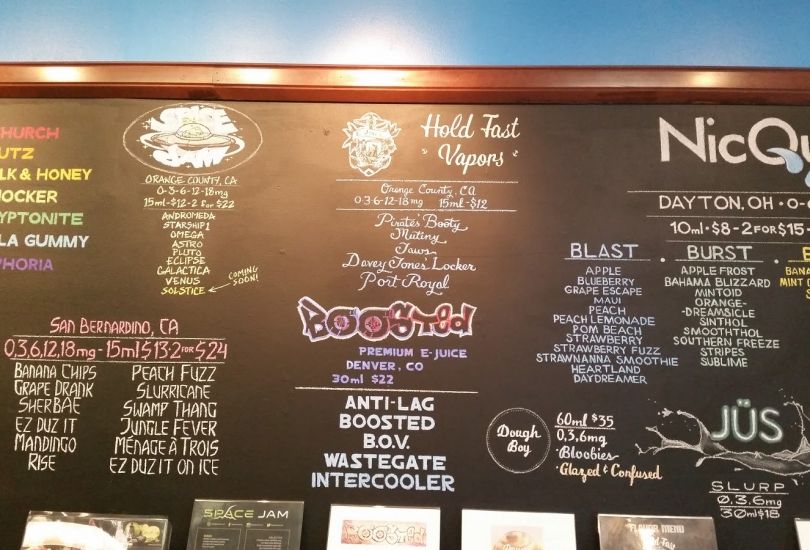 CHURCH
UTZ
LK & HONEY
OCKER
YPTONITE
LA GUMMY
PHORIA
SPACE JAM
ORANGE COUNTY, CA
0-3-6-12-18mg
15ml-$12-2 for $22
ANDROMEDA
STARSHIP 1
OMEGA
ASTRO
PLUTO
ECLIPSE
GALACTICA
VENUS
SOLSTICE
COMING SOON!
Hold Fast
Vapors
Orange County, CA
0·3·6-12-18mg 15ml-$12
Pirate's Booty
Mutiny
Jaws
Davey Jones' Locker
Port Royal
NicQu
DAYTON, OH · 0-
10ml·$8-2 FOR $15-
BLAST
APPLE
BLUEBERRY
GRAPE ESCAPE
MAUI
PEACH
PEACH LEMONADE
POM BEACH
STRAWBERRY
STRAWBERRY FUZZ
STRAWNANNA SMOOTHIE
HEARTLAND
DAYDREAMER
BURST
APPLE FROST
BAHAMA BLIZZARD
MINTOID
ORANGE-
-DREAMSICLE
SINTHOL
SMOOTHTHOL
SOUTHERN FREEZE
STRIPES
SUBLIME
BANA
MINT
SAN BERNARDINO, CA
0,3,6,12,18mg - 15ml $13·2 FOR $24
BANANA CHIPS
GRAPE DRANK
SHERBAE
EZ DUZ IT
MANDINGO
RISE
PEACH FUZZ
SLURRICANE
SWAMP THANG
JUNGLE FEVER
MÉNAGE À TROIS
EZ DUZ IT ON ICE
BOOSTED
PREMIUM E-JUICE
DENVER, CO
30ml $22
ANTI-LAG
BOOSTED
B.O.V.
WASTEGATE
INTERCOOLER
Dough
Boy
60ml $35
0,3,6mg
·Bloobies
·Glazed & Confused
JÜS
SLURP
0,3,6mg
30ml $18
SPACE JAM
BOOSTED
FLAVOR MENU